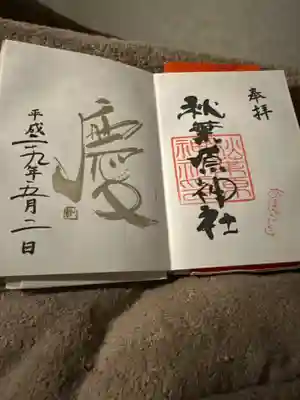 奉拝
秋葉原神社
慶
平成二九年五月二一日